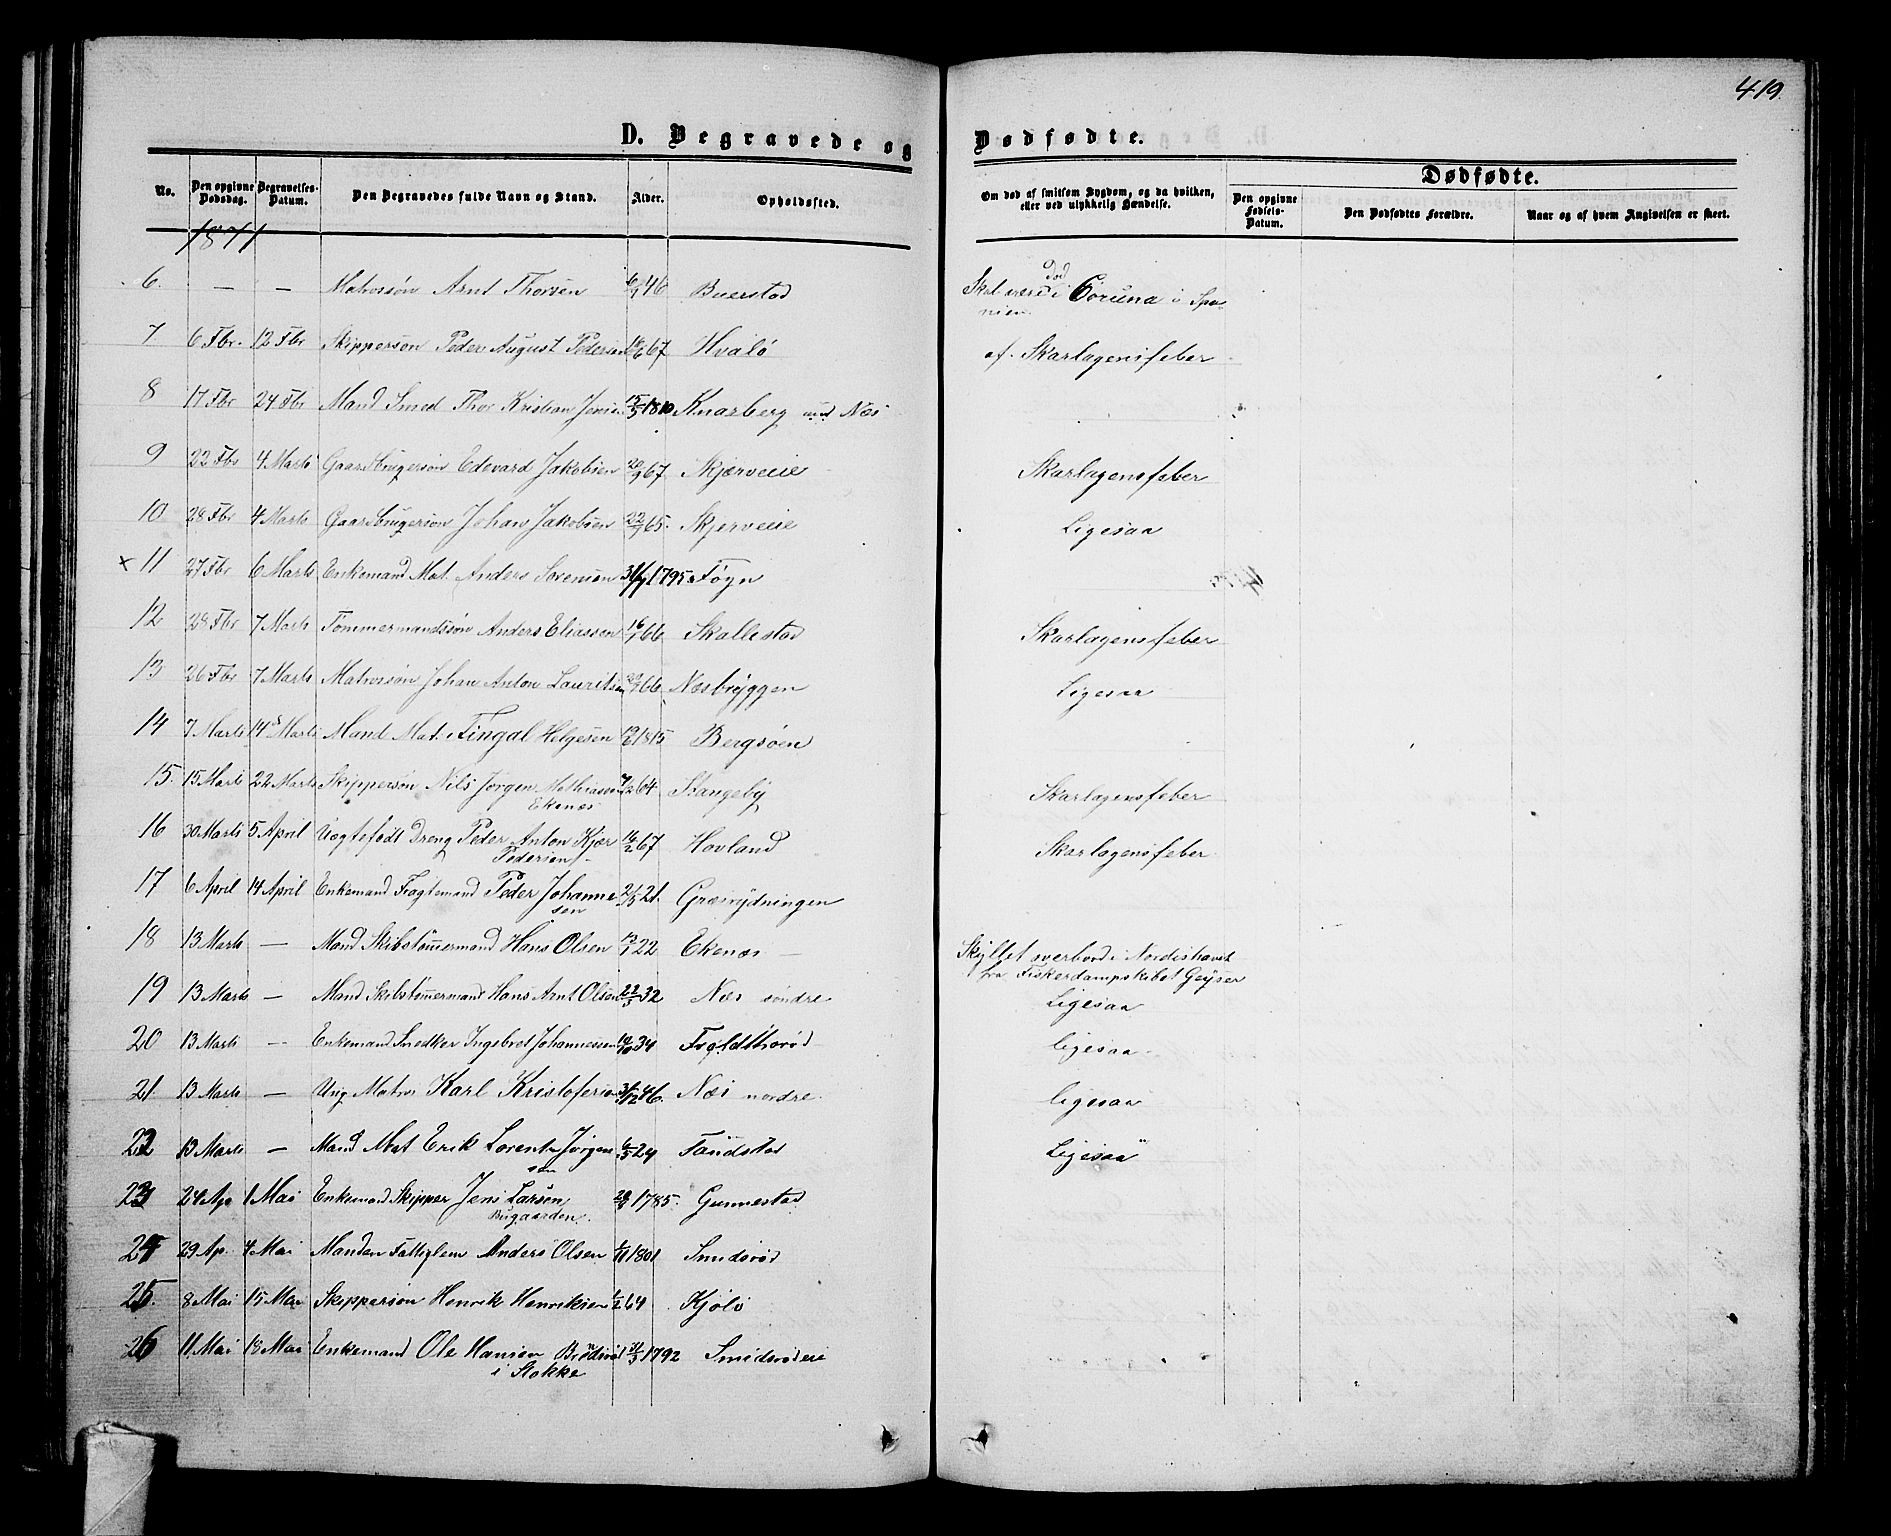 419.
D. Begravede og Dødfødte.
No. Den opgivne Dødsdag. Begravelses-Datum. Den Begravedes fulde Navn og Stand. Alder. Opholdssted. Om død af smitsom Sygdom, og da hvilken, eller ved ulykkelig Hændelse. Dødfødte. Den opgivne Fødsels-Datum. Den Dødfødtes Forældre. Naar og af hvem Angivelsen er skeet.
1871
6. — — Matrossøn Arnt Thorsen 46 Buerstad Skal være død i Coruna i Spanien.
7. 6 Fbr. 12 Fbr Skippersøn Peder August Pedersen 67 Hvalø af. Skarlagensfeber
8 17 Fbr 24 Fbr Mand Smed Thor Kristian Jensen 15/3 1810 Knarberg und Nes
9 22 Fbr 4 Marts Gaardbrugersøn Edevard Jakobsen 20/9 67 Skjærveie Skarlagensfeber
10 28 Fbr 4 Marts Gaardbrugersøn Johan Jakobsen 65. Skjerveie Ligesaa
x 11 27 Fbr 6 Marts Enkemand Mat. Anders Sørensen 1795 Føyn
12 28 Fbr 7 Marts Tømmermandssøn Anders Eliassen 66 Skallestad Skarlagensfeber
13. 26 Fbr 7 Marts Matrossøn Johan Anton Lauritsen 66 Næsbryggen Ligesaa
14 7 Marts 14 Marts Mand Mat. Fingal Helgesen 1815 Bergsøen
15. 15 Marts 22 Marts Skippersøn Nils Jørgen Mathiasen 64 Stangeby Skarlagensfeber
Ekenæs
16 30 Marts 5 April Uægtefødt Dreng Peder Anton Kjær 16/2 67 Hovland Skarlagensfeber
Pedersen
17 6 April 14 April Enkemand Fragtemand Peder Johannesen 2/5 21. Græsrydningen
18 13 Marts — Mand Skibstømmermand Hans Olsen 22 Ekenæs — Skyllet overbord i Nordishavet
fra Fiskerdampskibet Geyser
19 13 Marts — Mand Skibstømmermand Hans Arnt Olsen 22/3 32 Næs søndre Ligesaa
20 13 Marts — Enkemand Snedker Ingebret Johannessen 34 Ligesaa
21. 13 Marts — Ung Matros Karl Kristofersen 31/12 46. Næs nordre. Ligesaa
22 13 Marts — Mand Mat Erik Lorents Jørgensen 6/3 24 Ligesaa
23 24 Ap 1 Mai Enkemand Skipper Jens Larsen 1785. Gunnestad
Bugaarden.
24 29 Ap. 4 Mai Manden Fattiglem Anders Olsen 1/11 1801 Smidsrød
25. 8 Mai 15 Mai Skippersøn Henrik Henriksen 1/2 64 Kjøle
26 11 Mai 18 Mai Enkemand Ole Hansen Brødsrød 1792 Smidsrødeie
i Stokke